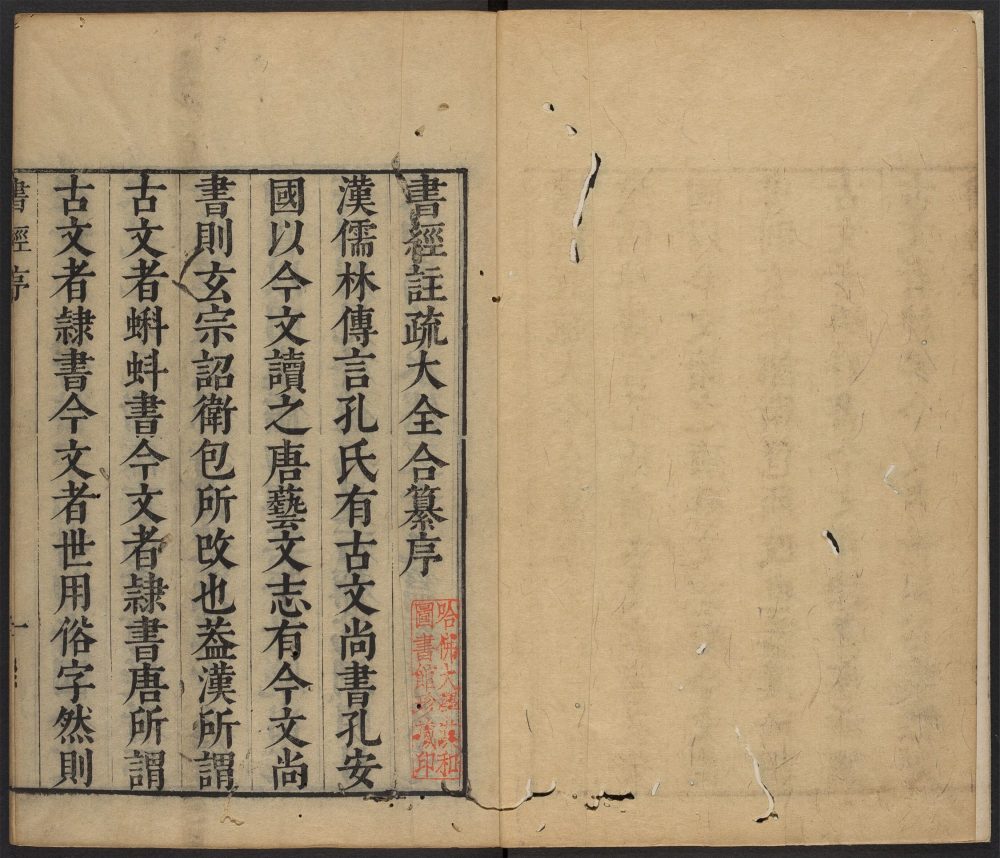 書經註疏大全合纂序
哈佛大學漢和
圖書館珍藏印
漢儒林傳言孔氏有古文尚書孔安
國以今文讀之唐藝文志有今文尚
書則玄宗詔衛包所改也葢漢所謂
古文者蝌蚪書今文者隷書唐所謂
古文者隷書今文者世用俗字然則
書經序
一